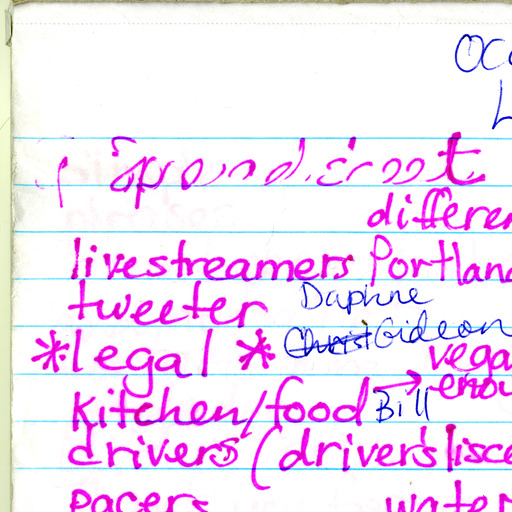 differen
livestreamers Portland
tweeter Daphne
*legal* Christ Gideon
vega
kitchen/food → enou
Bill
drivers (driver's lisce
pacers water